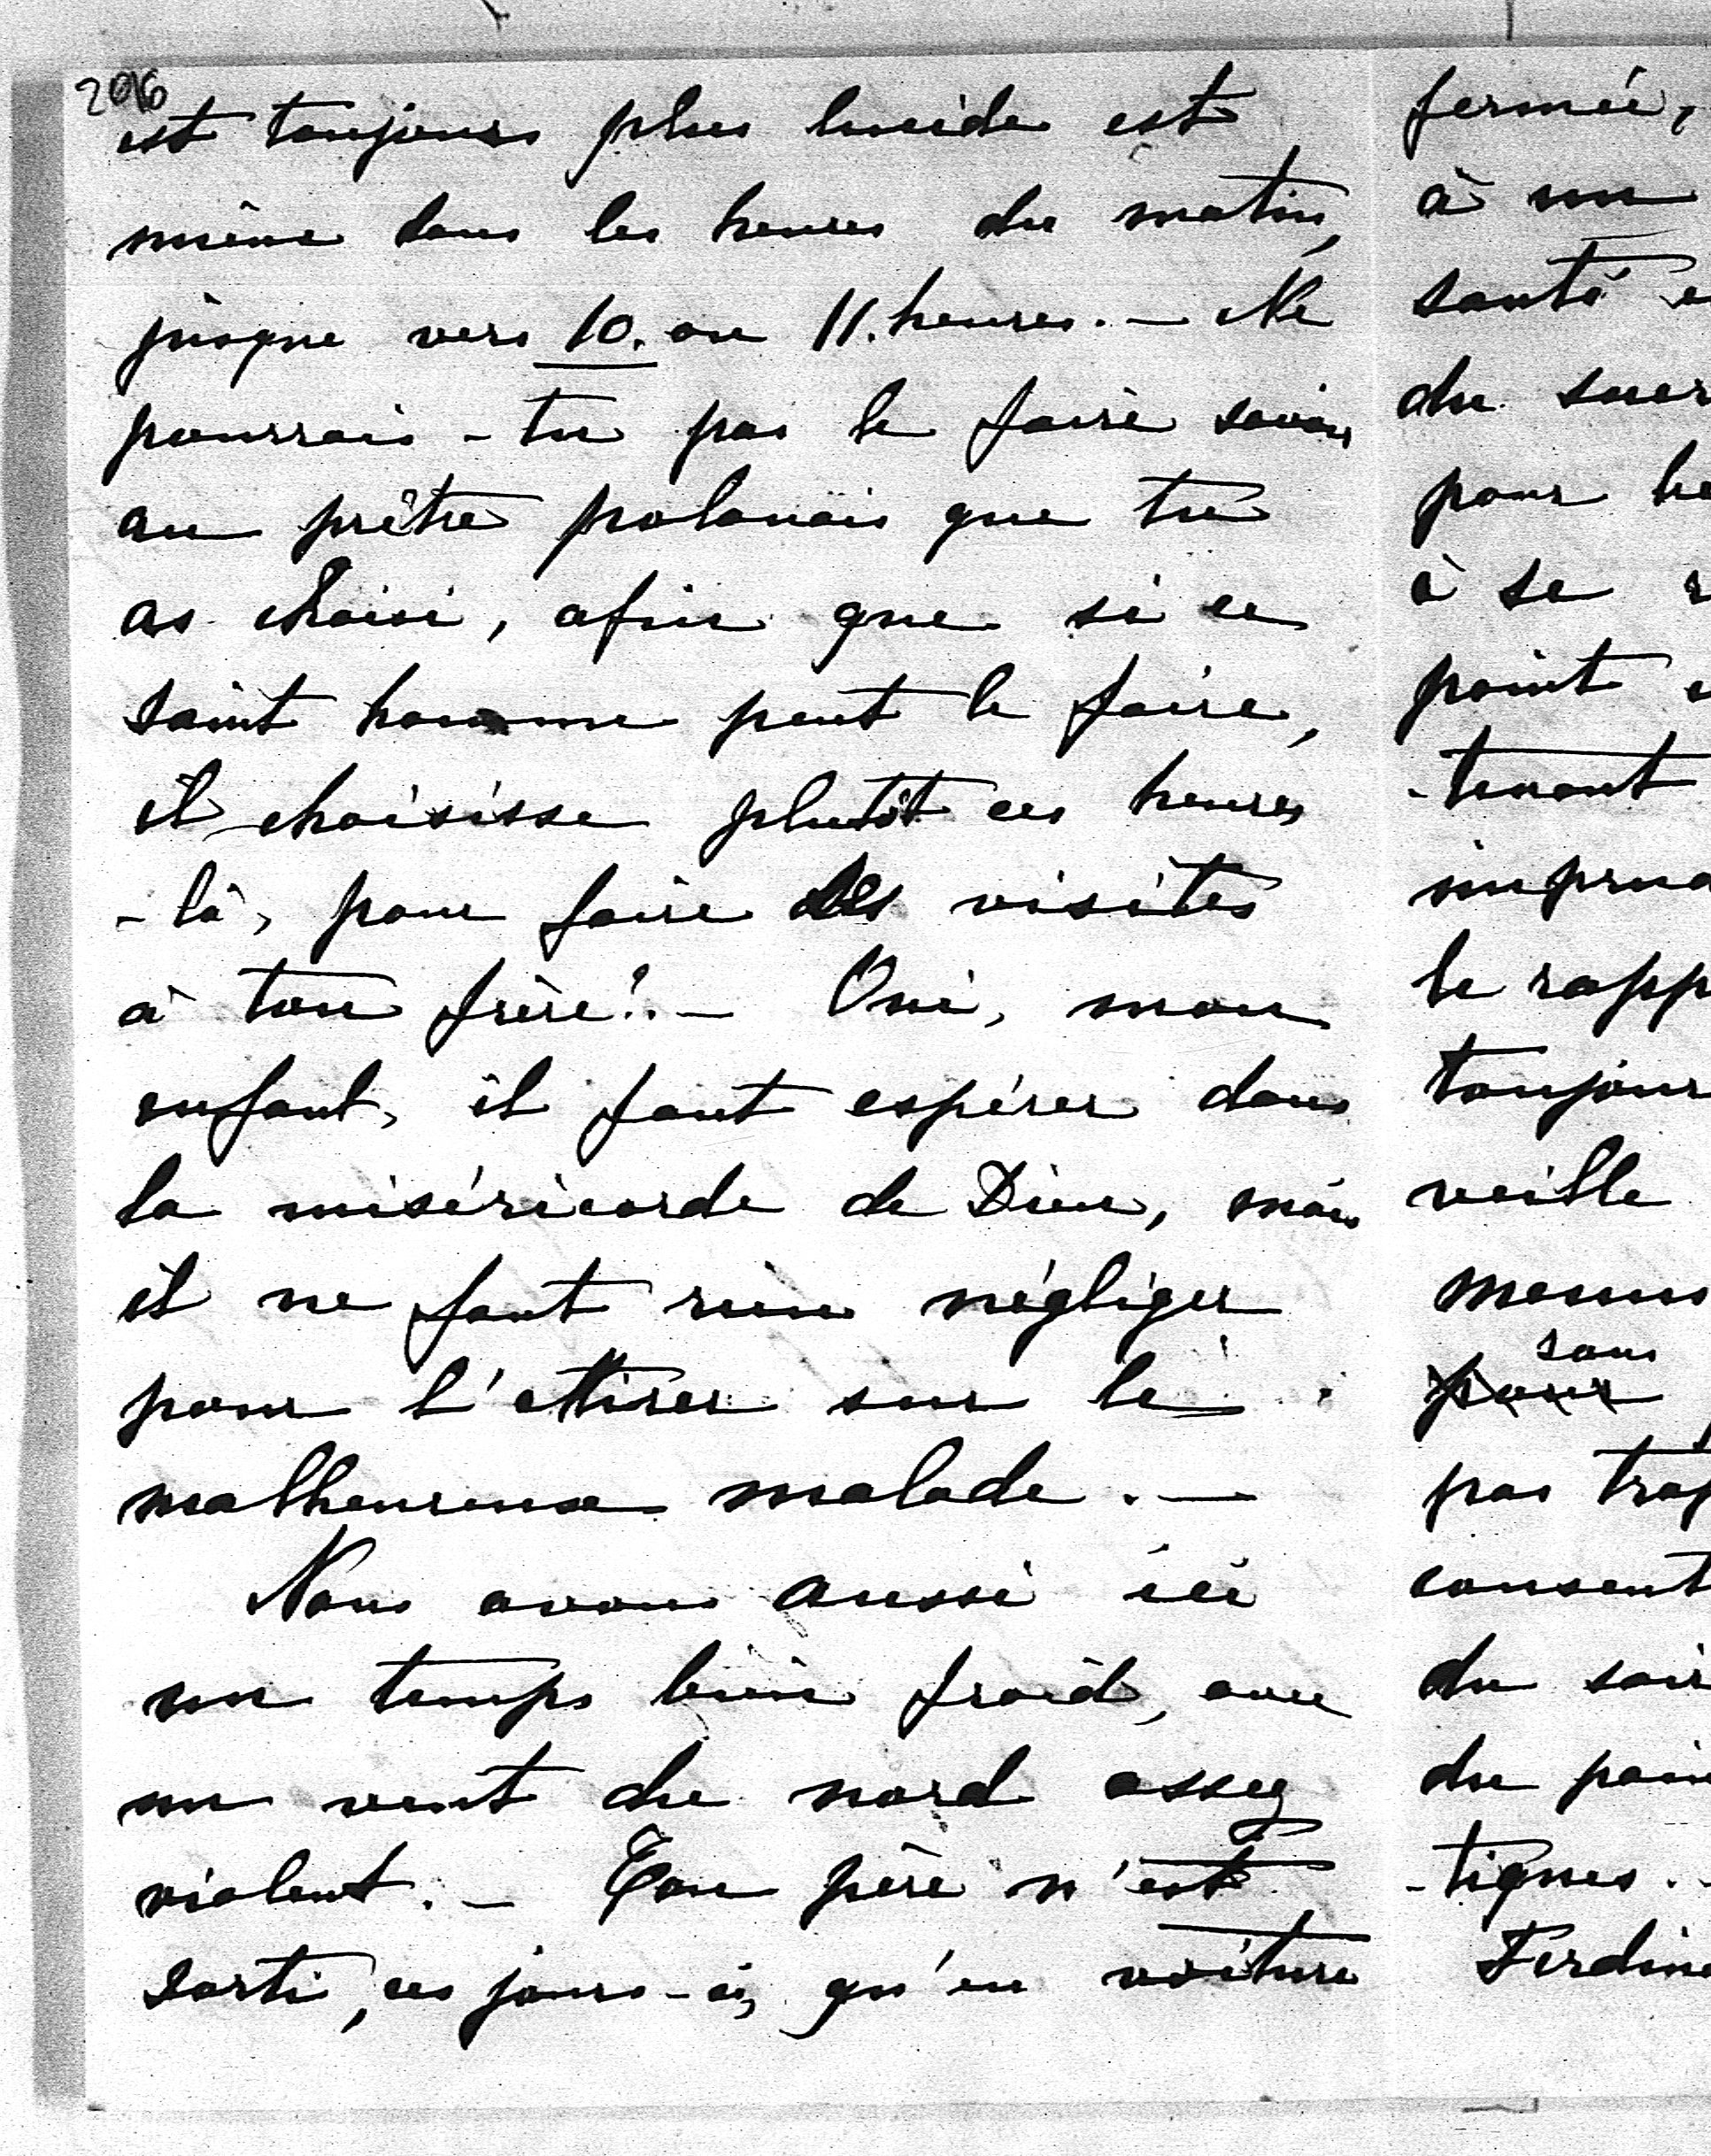 2016
est toujours plus lucide est
même dans les heures du matin,
jusque vers 10. ou 11. heures. — Ne
pourrais-tu pas le faire savoir
au prêtre polonais que tu
as choisi, afin que si ce
saint homme peut le faire,
il choisisse plutôt ces heures
-là, pour faire des visites
à ton frère?. — Oui, mon
enfant, il faut espérer dans
la miséricorde de Dieu, mais
il ne faut rien négliger
pour l'attirer sur le
malheureux malade. —
Nous avons aussi ici
un temps bien froid, avec
un vent du nord assez
violent. — Ton père n'est
sorti, ces jours-ci, qu'en voiture
fermée,
à un
santé
du
pour
à se
point
-tenant
le rapp
toujour
veille
sans
pour
pas trop
consent
du soir
du pain
-tiques. -
Ferdina